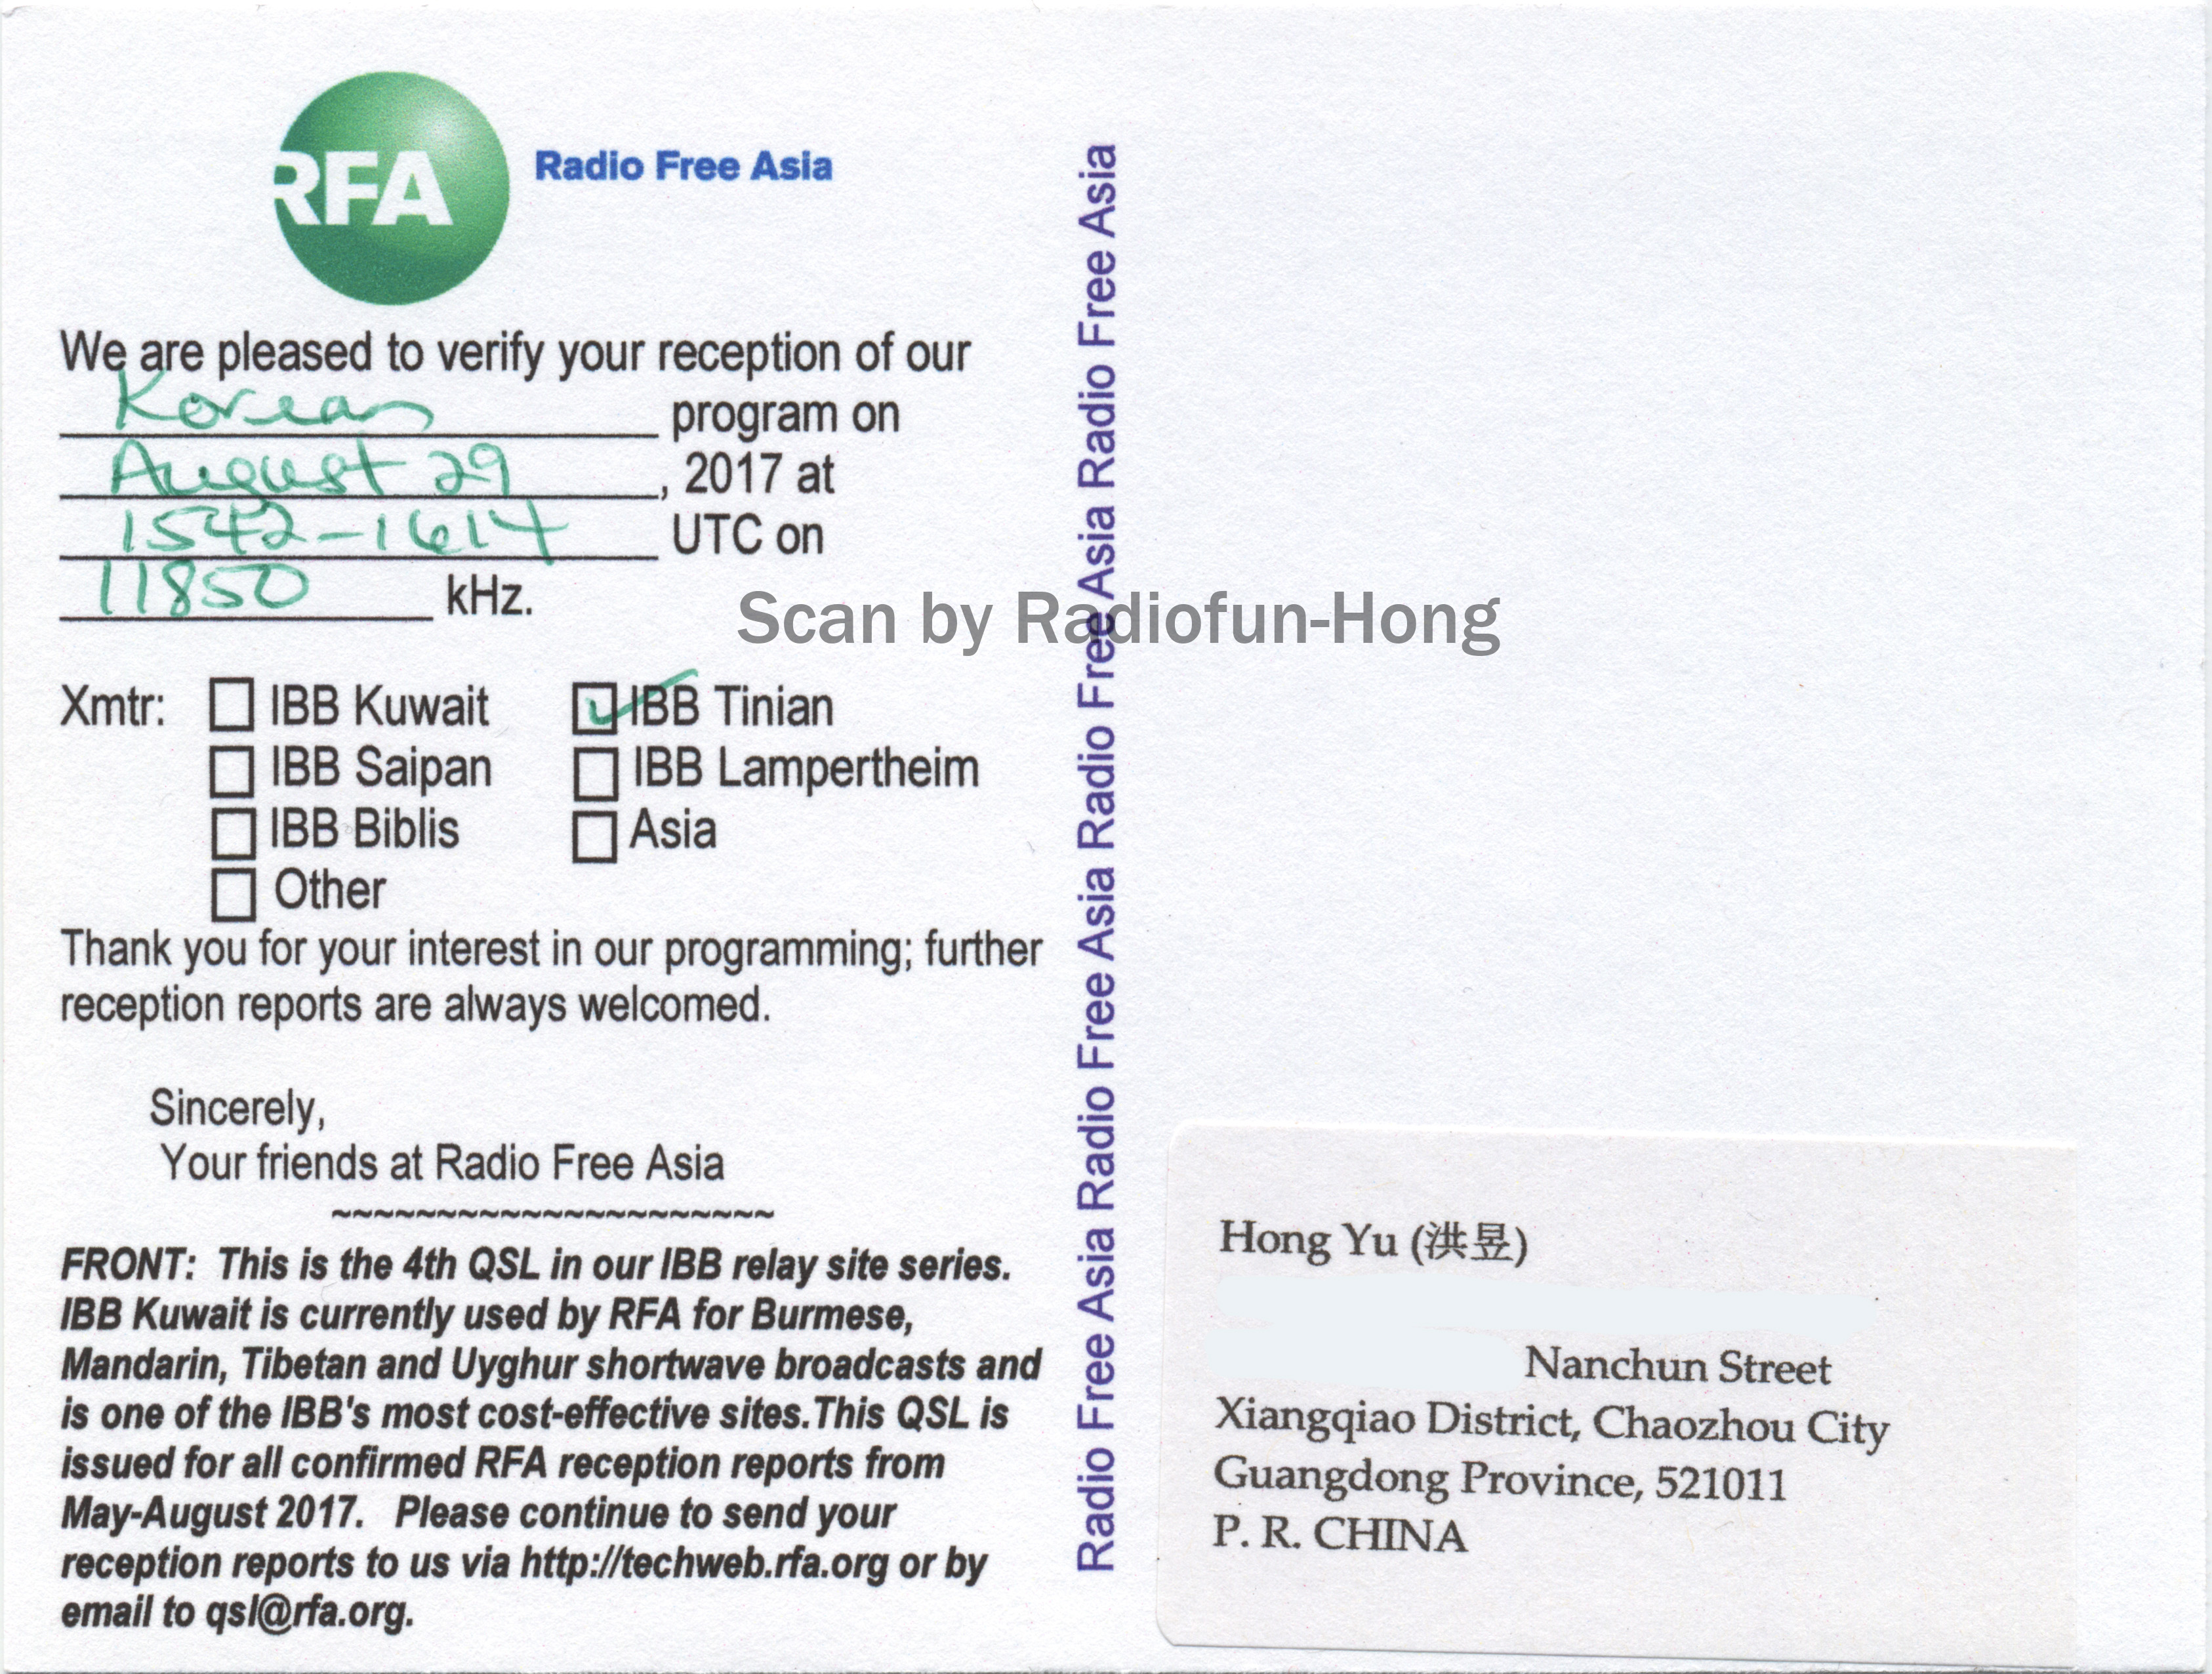 RFA Radio Free Asia
We are pleased to verify your reception of our
Korean program on
August 29, 2017 at
1542-1614 UTC on
11850 kHz.
Scan by Radiofun-Hong
Xmtr: IBB Kuwait IBB Tinian
IBB Saipan IBB Lampertheim
IBB Biblis Asia
Other
Thank you for your interest in our programming; further
reception reports are always welcomed.
Sincerely,
Your friends at Radio Free Asia
~~~~~~~~~~~~~~~~~~~~~
FRONT: This is the 4th QSL in our IBB relay site series.
IBB Kuwait is currently used by RFA for Burmese,
Mandarin, Tibetan and Uyghur shortwave broadcasts and
is one of the IBB's most cost-effective sites.This QSL is
issued for all confirmed RFA reception reports from
May-August 2017. Please continue to send your
reception reports to us via http://techweb.rfa.org or by
email to qsl@rfa.org.
Radio Free Asia Radio Free Asia Radio Free Asia Radio Free Asia Radio Free Asia
Hong Yu (洪昱)
Nanchun Street
Xiangqiao District, Chaozhou City
Guangdong Province, 521011
P. R. CHINA